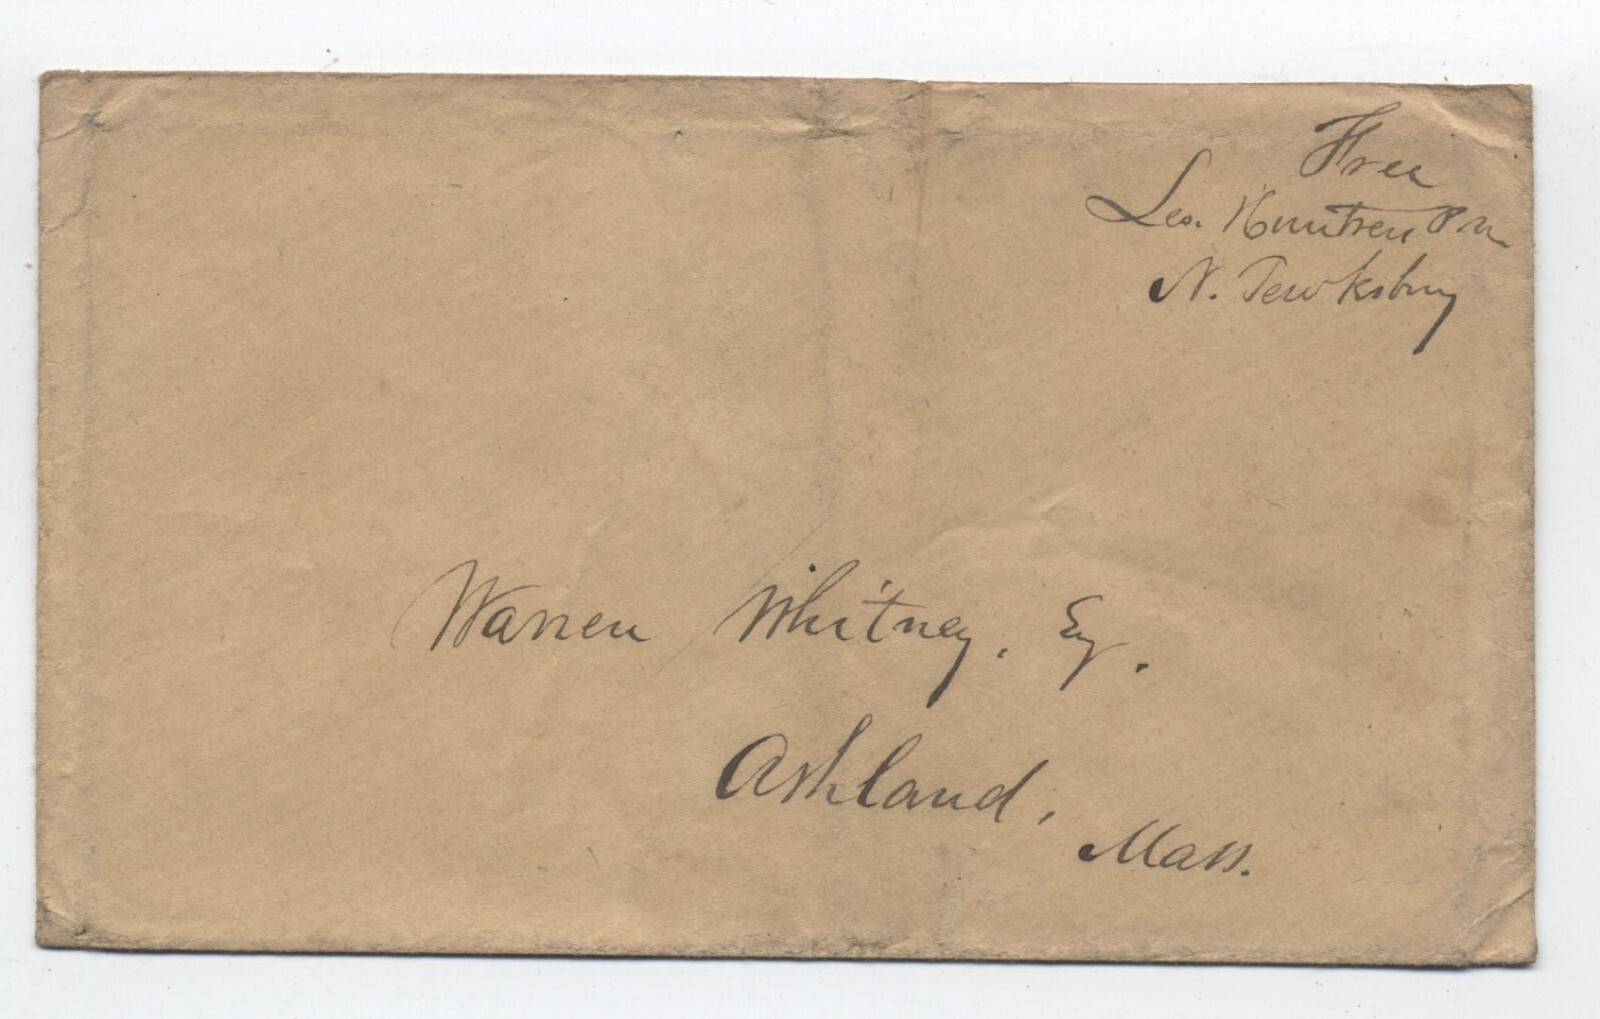 Free
Leo. Huntress P m
N. Tewksbury
Warren Whitney, Esq.
Ashland,
Mass.